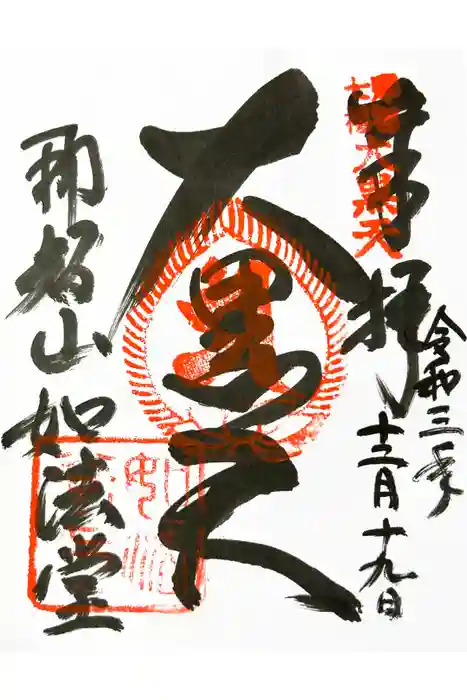 奉拝
大黒天
令和三年
十二月十九日
大黒天
那智山如法堂